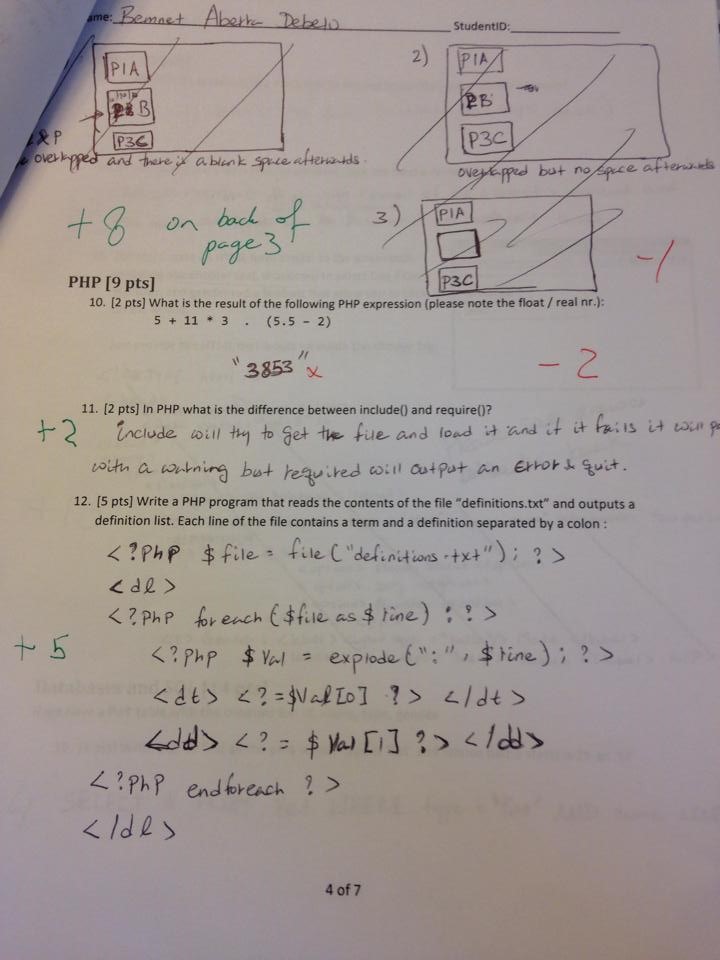 ame: Bemnet Aberra Debelo StudentID:
P1A
B
P3C
&P
overlapped and there is a blank space afterwards.
2)
P1A
B
P3C
overlapped but no space afterwards
3)
P1A
P3C
-1
+8 on back of
page 3
PHP [9 pts]
10. [2 pts] What is the result of the following PHP expression (please note the float / real nr.):
5 + 11 * 3 . (5.5 – 2)
"3853" x
- 2
11. [2 pts] In PHP what is the difference between include() and require()?
+2
include will try to get the file and load it and if it fails it will
with a warning but required will output an Error & quit.
12. [5 pts] Write a PHP program that reads the contents of the file "definitions.txt" and outputs a
definition list. Each line of the file contains a term and a definition separated by a colon :
<?PhP $file = file("definitions.txt"); ?>
<dl>
<?PhP foreach ($file as $line) : ?>
+5
<?PhP $Val = explode(":", $line); ?>
<dt> <?=$Val[0] ?> </dt>
<dd> <?= $Val[1] ?> </dd>
<?PhP endforeach ?>
</dl>
4 of 7